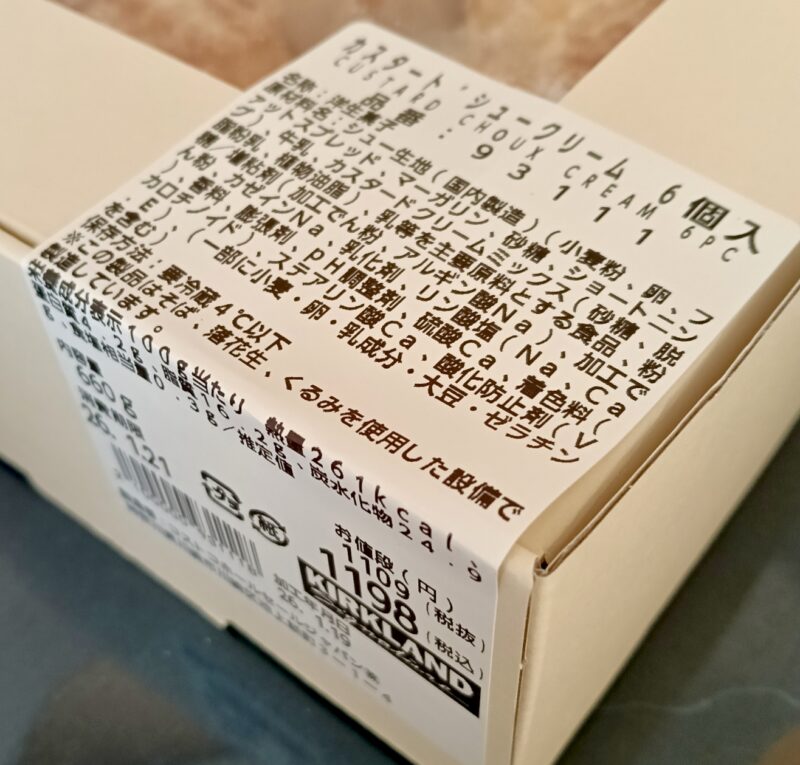 カスタード・シュークリーム 6個入
CUSTARD CHOUX CREAM 6PC
品番：93111
名称：洋生菓子
原材料名：シュー生地（国内製造）（小麦粉、卵、フ
ァットスプレッド、マーガリン、砂糖、ショートニン
グ）、牛乳、カスタードクリームミックス（砂糖、脱
脂粉乳、植物油脂）、乳等を主要原料とする食品、粉
糖／増粘剤（加工でん粉、アルギン酸Na）、加工で
ん粉、カゼインNa、乳化剤、リン酸塩（Na、Ca
）、香料、膨張剤、pH調整剤、硫酸Ca、着色料（
カロチノイド）、ステアリン酸Ca、酸化防止剤（V
．E）、（一部に小麦・卵・乳成分・大豆・ゼラチン
を含む）
保存方法：要冷蔵4℃以下
※この製品はそば、落花生、くるみを使用した設備で
製造しています。
栄養成分表示100g当たり 熱量261kcal、
炭水化物24.9
食塩相当量0.3g/推定値
内容量
660g
消費期限
26. 1.21
プラ
紙
お値段（円）
1109（税抜）
1198（税込）
加工年月日
26. 1.19
KIRKLAND